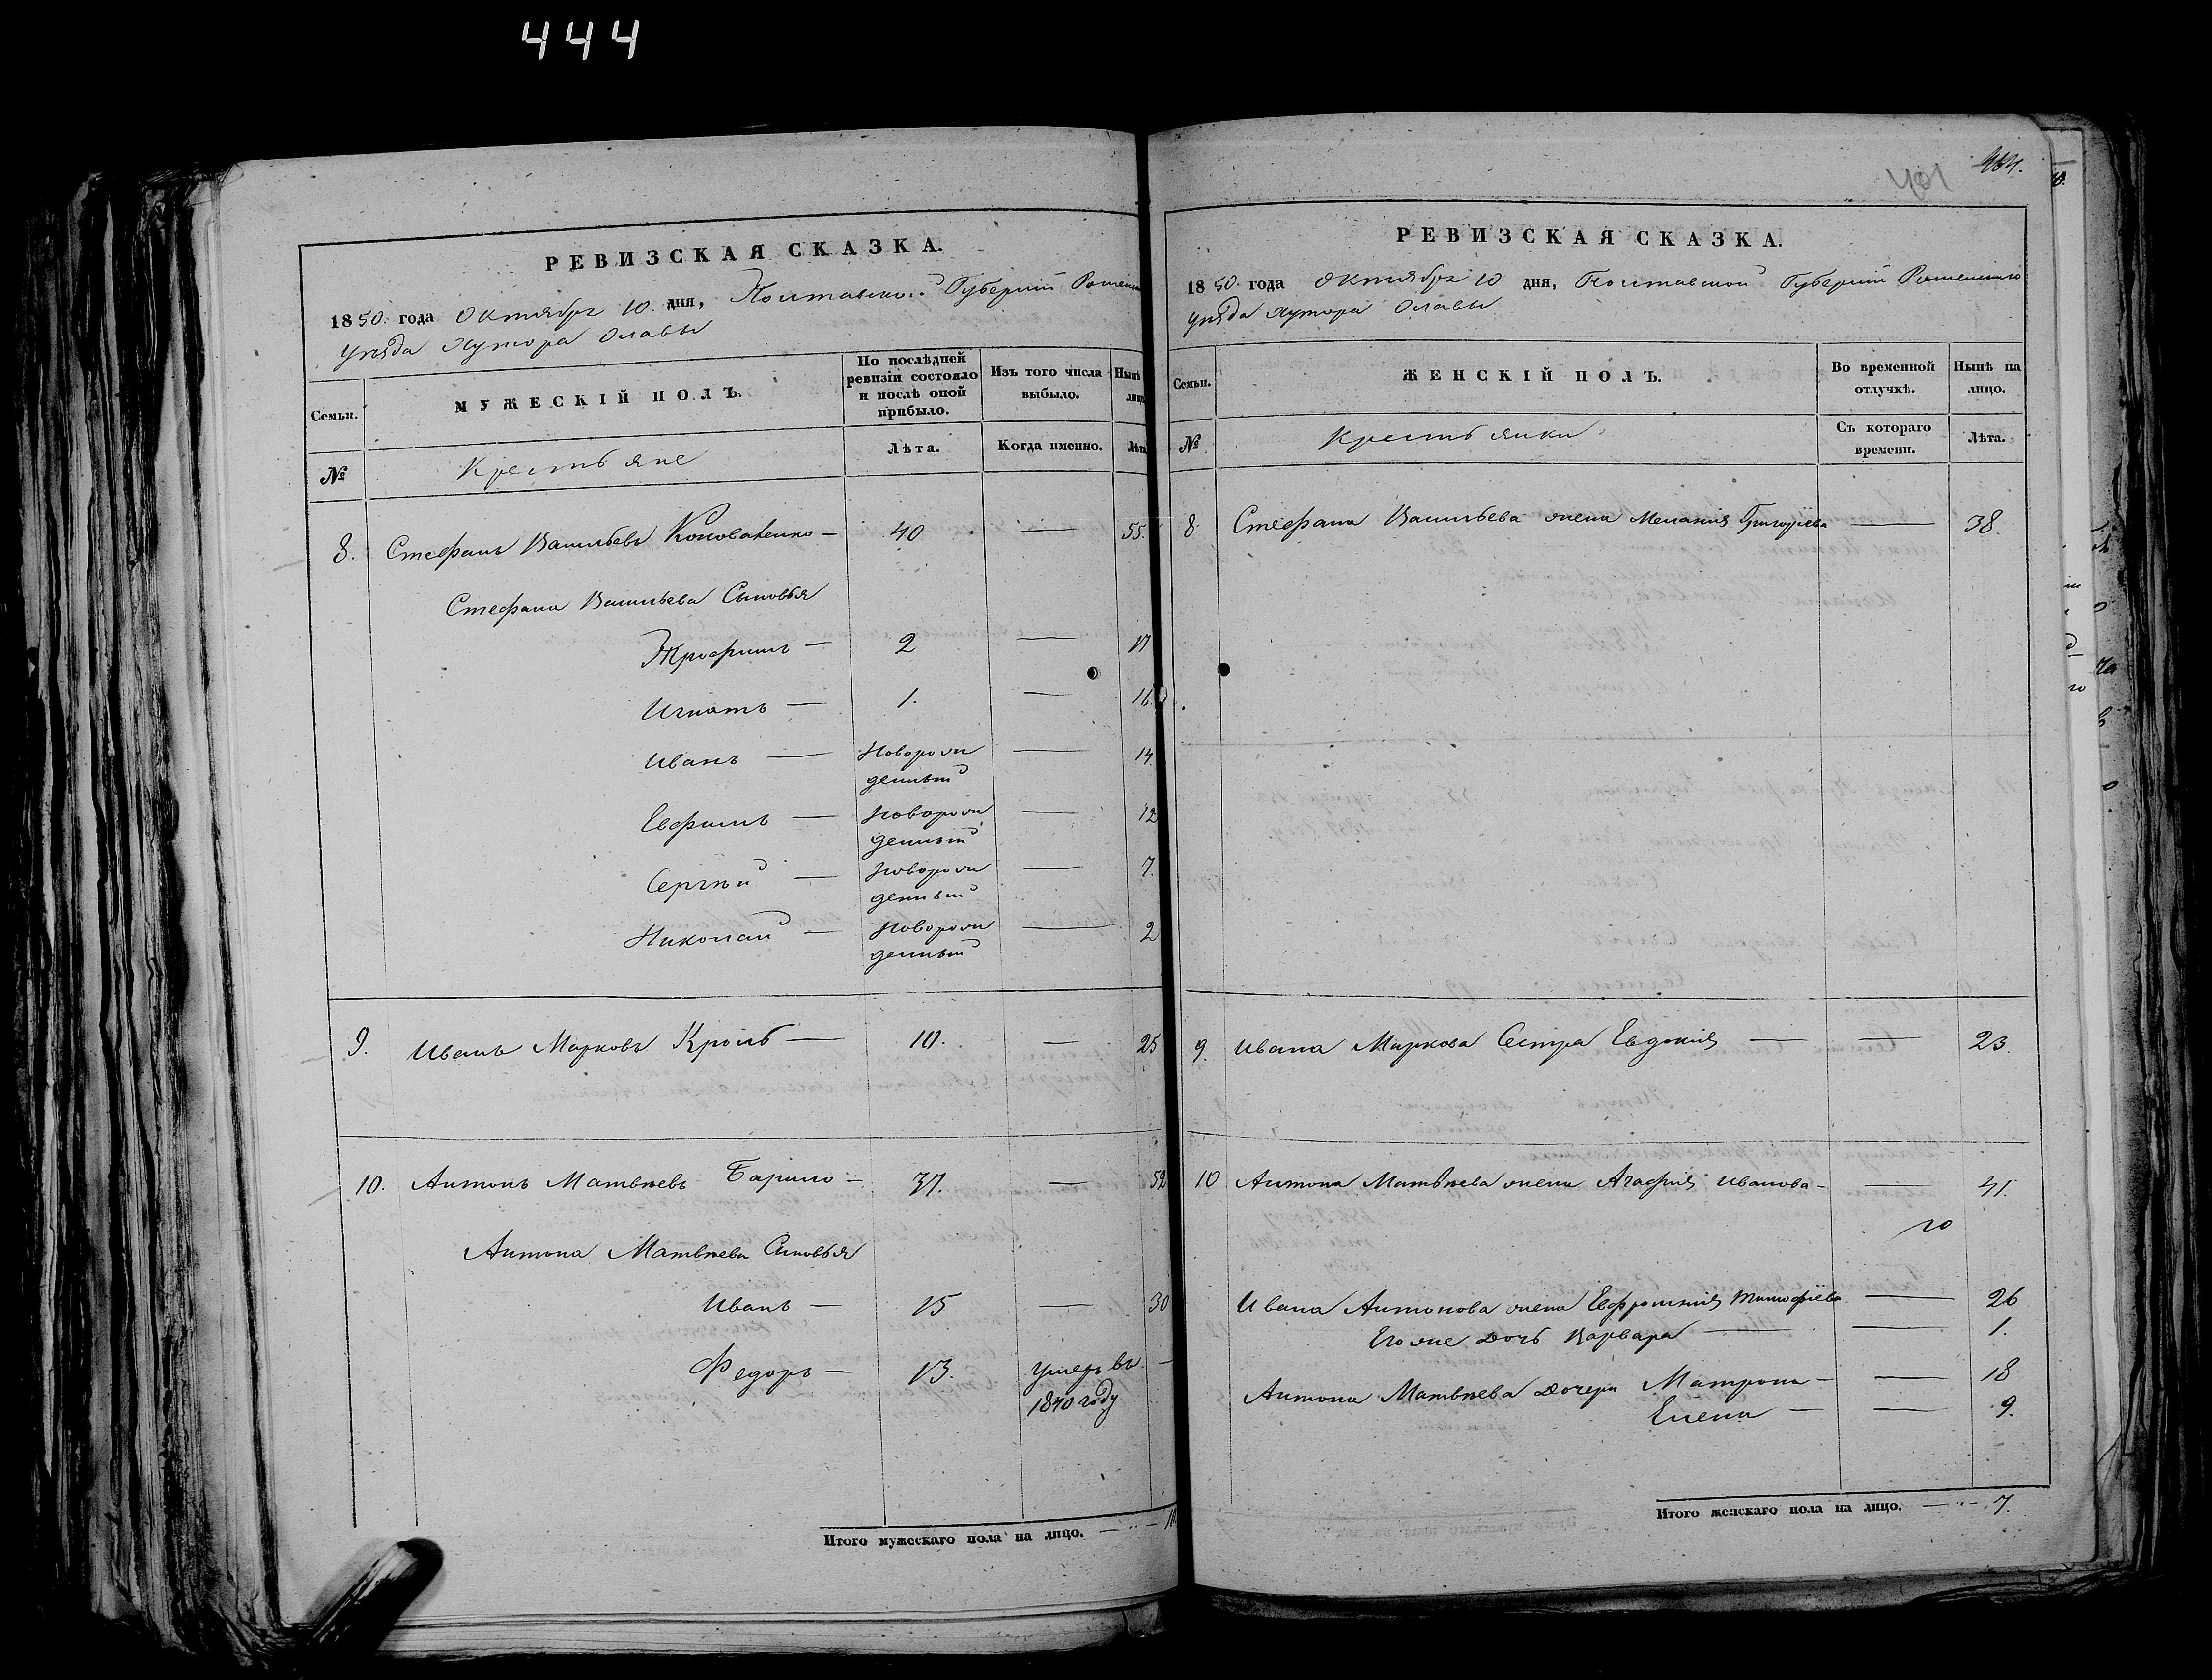 444
РЕВИЗСКАЯ СКАЗКА.
1850 года Октября 10 дня, Полтавской Губерніи Роменск
уѣзда Хутора Олавы
Семьи.
МУЖЕСКІЙ ПОЛЪ.
По послѣдней ревизіи состояло и послѣ оной прибыло.
Изъ того числа выбыло.
Нынѣ лицо
№
Крестьяне
Лѣта.
Когда именно.
Лѣта
8. Стефанъ Васильевъ Коноваленко — 40 — 55.
Стефана Васильева Сыновья
Трофимъ — 2 — 17
Игнатъ — 1. — 16.
Иванъ — Новорож — 14.
денный
Евфимъ — Новорож — 12
денный
Сергѣй — Новорож — 7.
денный
Николай — Новорож — 2
денный
9. Иванъ Марковъ Кроль — 10. — 25
10. Антонъ Матвѣевъ — 37. — 52
Антона Матвѣева Сыновья
Иванъ — 15 — 30
Федоръ — 13. Умеръ въ —
1840 году
Итого мужескаго пола на лицо. — " — 10
404.
РЕВИЗСКАЯ СКАЗКА.
1850 года Октября 10 дня, Полтавской Губерніи Роменскаго
уѣзда Хутора Олавы
Семьи.
ЖЕНСКІЙ ПОЛЪ.
Во временной отлучкѣ.
Нынѣ на лицо.
№
Крестьянки
Съ котораго времени.
Лѣта.
8 Стефана Васильева жена Меланія Григоріева — 38.
9. Ивана Маркова Сестра Евдокія — — 23.
10 Антона Матвѣева жена Агафія Иванова — — 41.
Ивана Антонова жена Евфросинія Тимофіева — 26
Его же дочь Варвара — — 1.
Антона Матвѣева дочери Матрона — — 18
Елена — — 9.
Итого женскаго пола на лицо. — " — 7.